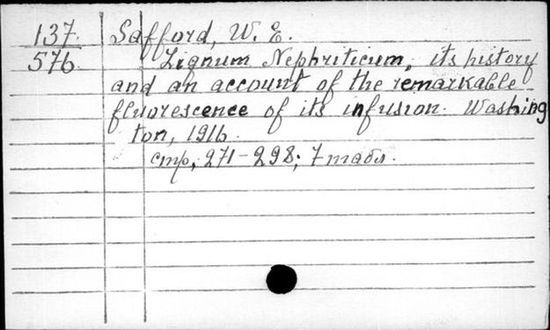 137 Safford, W. E.
576 Lignum Nephriticum, its history
and an account of the remarkable
fluorescence of its infusion. Washing
ton, 1916.
стр, 271-298; 7 табл.